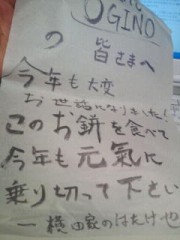 OGINO
の 皆さまへ
今年も大変
お世話になりました!
このお餅を食べて
今年も元氣に
乗り切って下さい
一横田家のはたけ也